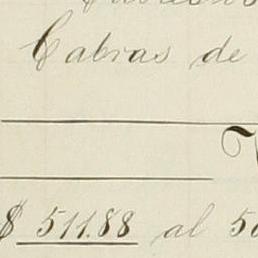 Cabras de
$ 511.88 al 50